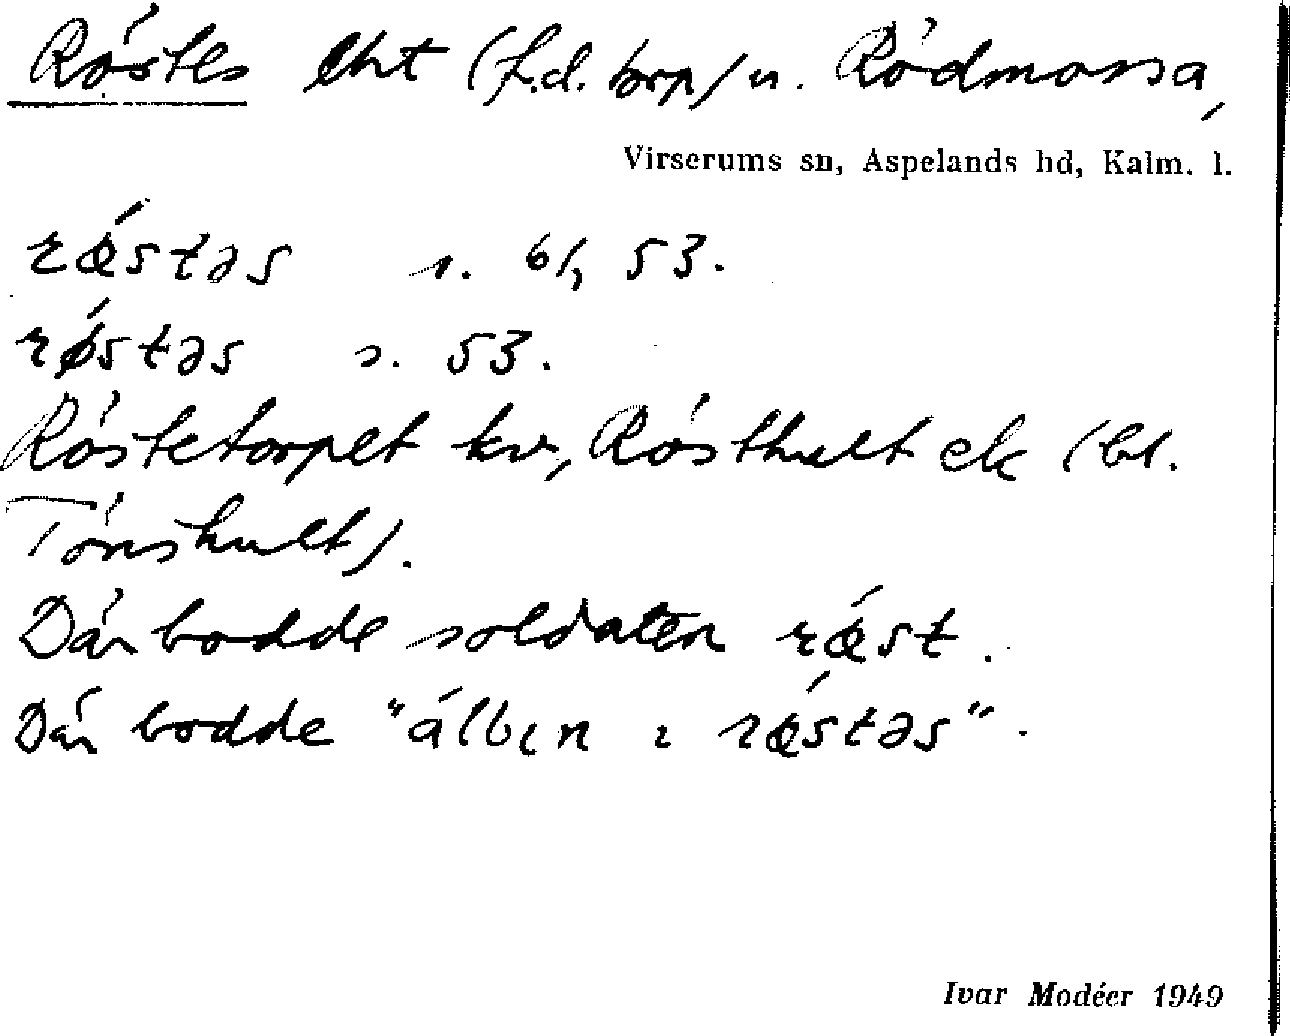 Röstes lht (f.d. torp) u. Rödmossa,
Virserums sn, Aspelands hd, Kalm. l.
rǿstəs s. 61, 53.
rǿstəs s. 53.
Röstetorpet kv, Rösthult ek (bl.
Tönshult).
Där bodde soldaten rǿst.
Där bodde "álbın ı rǿstəs".
Ivar Modéer 1949